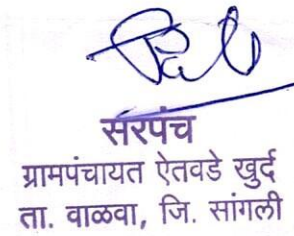 सरपंच
ग्रामपंचायत ऐतवडे खुर्द
ता. वाळवा, जि. सांगली